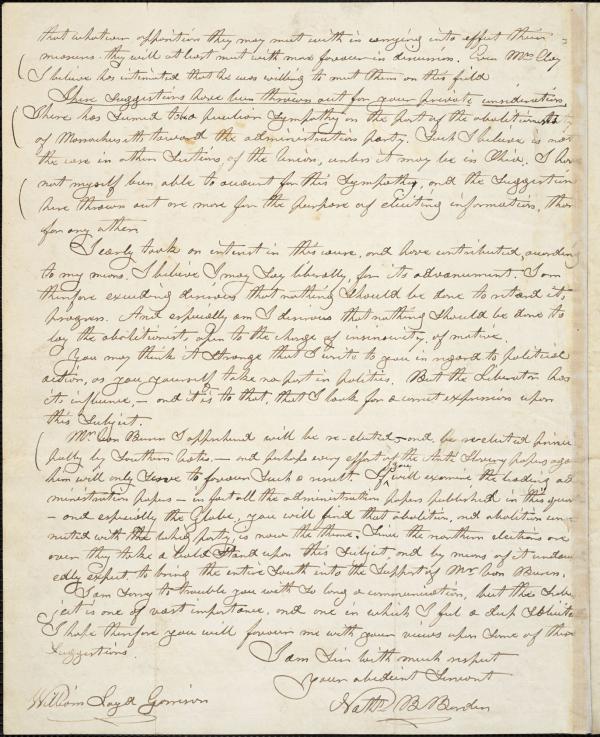 that whatever opposition they may meet with in carrying into effect their
measures they will at least meet with more forever in discussion. Even Mr Clay
I believe has intimated that he was willing to meet them on this field
These suggestions have been thrown out for your private consideration
There has seemed to a peculiar sympathy on the part of the abolitionists
of Massachusetts toward the administration party. Such I believe is not
the case in other Sections of the Union, unless it may be in Ohio. I have
not myself been able to account for this Sympathy, and the Suggestions
here thrown out are more for the purpose of eliciting information, than
for any other
I early took an interest in this cause, and have contributed, according
to my means, I believe I may say liberally, for its advancement. I am
therefore exceeding desirous that nothing should be done to retard its
progress. And especially am I desirous that nothing should be done to
lay the abolitionists open to the charge of insincerity, of motive.
You may think it strange that I write to you in regard to political
action, as you yourself take no part in politics. But the Liberator has
its influence, — and it is to that, that I look for a correct expression upon
this Subject.
Mr Van Buren I apprehend will be re-elected, and be re-elected princi
pally by Southern votes, — and perhaps every effort of the Anti Slavery papers again
him will only serve to forever such a result. If you will examine the leading ad
ministration papers — in fact all the administration papers published in this quar
— and especially the Globe, you will find that abolition, and abolition con-
nected with the whig party, is now the theme. Since the northern elections are
over they take a bold stand upon this subject, and by means of it undoubt
edly expect to bring the entire South into the Support of Mr Van Buren.
I am sorry to trouble you with so long a communication, but the Sub-
ject is one of vast importance, and one in which I feel a deep Solicitude
I hope therefore you will favour me with your views upon some of these
Suggestions.
I am Sir with much respect
Your obedient Servant
Nathl B Borden
William Loyd Garrison